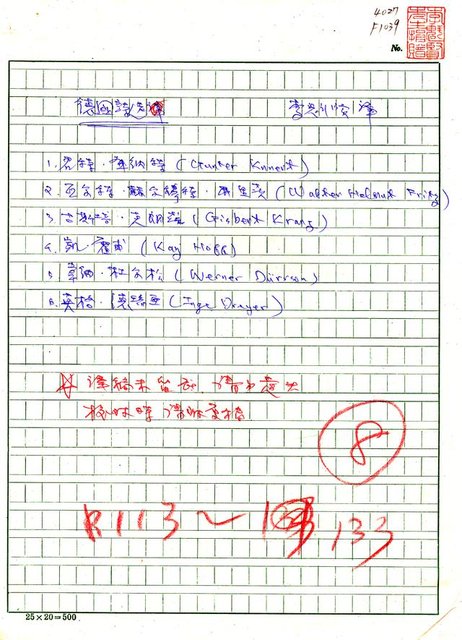 4027
F1039
No.
德國詩選譯 李魁賢 譯
1. 君特·庫納特 (Gunter Kunert)
2. 瓦爾特·赫爾穆特·弗里茨 (Walter Helmut Fritz)
3. (Gisbert Kranz)
4. 凱·霍甫 (Kay Hoff)
5. 韋納·杜爾松 (Werner Dürrson)
6. 英格·德萊雅 (Inge Drayer)
譯稿未留底，請勿遺失
校對時請附原稿
8
P.113~133
25×20=500